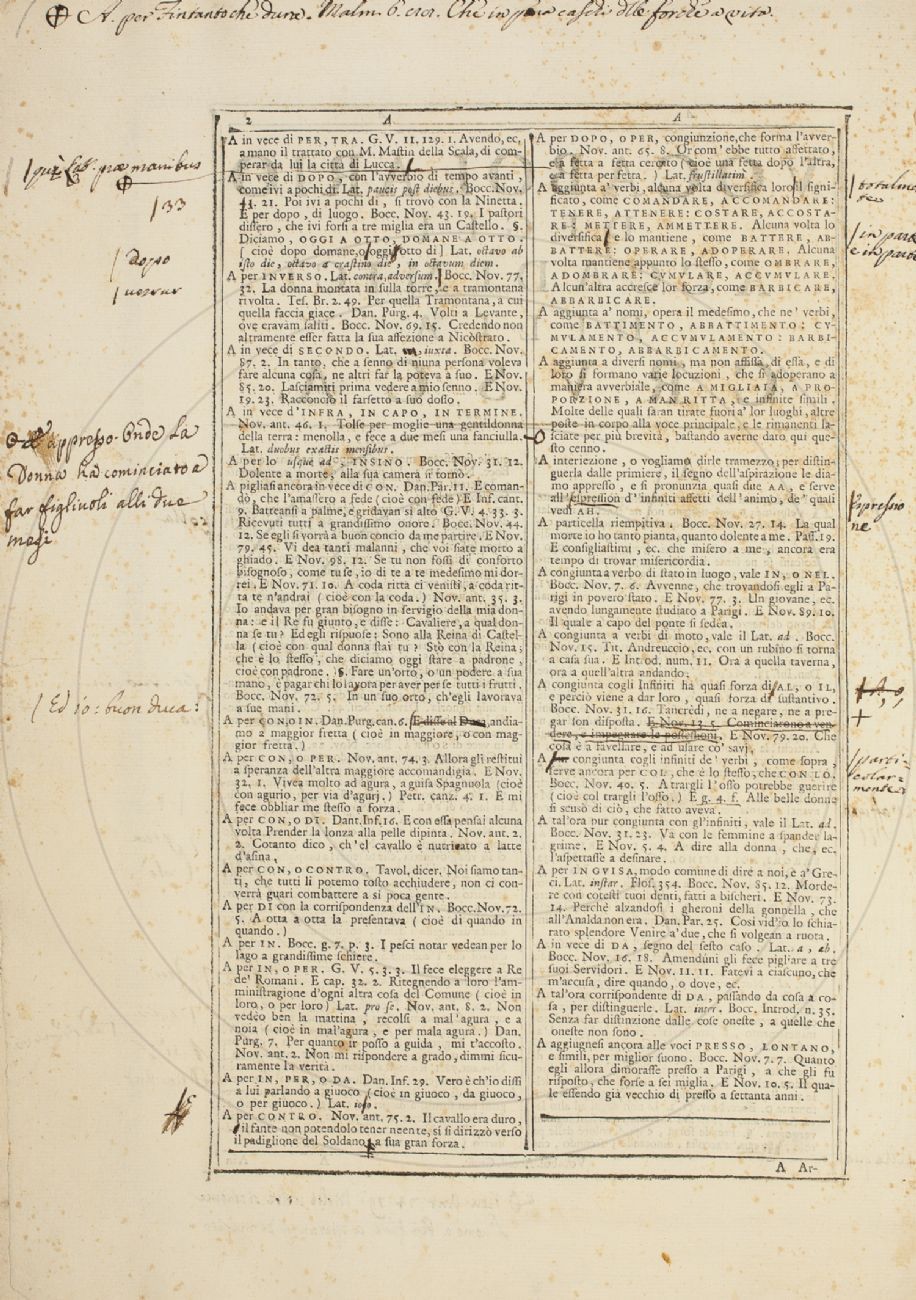 A. per Fintantoché dura. Malm. 6.
2 A A
A in vece di PER, TRA. G. V. 11. 129. 1. Avendo, ec,
a mano il trattato con M. Mastin della Scala, di com-
perar da lui la città di Lucca.
A in vece di DOPO, con l'avverbio di tempo avanti,
come ivi a pochi dì. Lat. paucis post diebus. Bocc. Nov.
21. Poi ivi a pochi dì, si trovò con la Ninetta.
E per dopo, di luogo. Bocc. Nov. 43. 19. I pastori
dissero, che ivi forsi a tre miglia era un Castello. §.
Diciamo, OGGI A OTTO, DOMANE A OTTO.
[ cioè dopo domane, o oggi otto dì ] Lat. octavo ab
isto die, octavo a crastino die, in octavum diem.
A per INVERSO. Lat. contra, adversum. Bocc. Nov. 77.
32. La donna montata in sulla torre, e a tramontana
rivolta. Tes. Br. 2. 49. Per quella Tramontana, a cui
quella faccia giace. Dan. Purg. 4. Volti a Levante,
ove cravàm saliti. Bocc. Nov. 69. 15. Credendo non
altramente esser fatta la sua affezione a Nicostrato.
A in vece di SECONDO. Lat. iuxta. Bocc. Nov.
87. 2. In tanto, che a senno di niuna persona voleva
fare alcuna cosa, ne altri far la poteva a suo. E Nov.
85. 20. Lasciamiti prima vedere a mio senno. E Nov.
19. 23. Racconciò il farsetto a suo dosso.
A in vece d'INFRA, IN CAPO, IN TERMINE.
Nov. ant. 46. 1. Tolse per moglie una gentildonna
della terra: menolla, e fece a due mesi una fanciulla.
Lat. duobus exactis mensibus.
A per lo usque ad, INSINO. Bocc. Nov. 31. 12.
Dolente a morte, alla sua camera si tornò.
A pigliasi ancora in vece di CON. Dan. Par. 11. E coman-
dò, che l'amassero a fede (cioè con fede) E Inf. cant.
9. Batteansi a palme, e gridavan sì alto G. V. 4. 33. 3.
Ricevuti tutti a grandissimo onore. Bocc. Nov. 44.
12. Se egli si vorrà a buon concio da me partire. E Nov.
79. 45. Vi dea tanti malanni, che voi siate morto a
ghiado. E Nov. 98. 12. Se tu non fossi di conforto
bisognoso, come tu se, io di te a te medesimo mi dor-
rei. E Nov. 71. 10. A coda ritta ci venisti, a coda rit-
ta te n'andrai (cioè con la coda.) Nov. ant. 35. 3.
Io andava per gran bisogno in servigio della mia don-
na: e il Re fu giunto, e disse: Cavaliere, a qual don-
na se tu? Ed egli rispuose: Sono alla Reina di Castel-
la (cioè con qual donna stai tu? Stò con la Reina;
che è lo stesso, che diciamo oggi stare a padrone,
cioè con padrone. §. Fare un'orto, o un podere a sua
mano, è pagar chi lo lavora per aver per se tutti i frutti.
Bocc. Nov. 72. 5. In un suo orto, ch'egli lavorava
a sue mani.
A per CON, O IN. Dan. Purg. can. 6. E disse al Duca, andia-
mo a maggior fretta (cioè in maggiore, o con mag-
gior fretta.)
A per CON, O PER. Nov. ant. 74. 3. Allora gli restitui
a speranza dell'altra maggiore accomandigia. E Nov.
32. 1. Vivea molto ad agura, a guisa Spagnuola (cioè
con agurio, per via d'agurj.) Petr. canz. 4. 1. E mi
fece obbliar me stesso a forza.
A per CON, O DI. Dant. Inf. 16. E con essa pensai alcuna
volta Prender la lonza alla pelle dipinta. Nov. ant. 2.
2. Cotanto dico, ch'el cavallo è nutricato a latte
d'asina,
A per CON, O CONTRO. Tavol. dicer. Noi siamo tan-
ti, che tutti li potemo tosto acchiudere, non ci con-
verrà guari combattere a sì poca gente.
A per DI con la corrispondenza dell'IN. Bocc. Nov. 72.
5. A otta a otta la presentava (cioè di quando in
quando.)
A per IN. Bocc. g. 7. p. 3. I pesci notar vedean per lo
lago a grandissime schiere.
A per IN, O PER. G. V. 5. 3. 3. Il fece eleggere a Re
de' Romani. E cap. 32. 2. Ritegnendo a loro l'am-
ministragione d'ogni altra cosa del Comune (cioè in
loro, o per loro) Lat. pro se, Nov. ant. 8. 2. Non
vedeo ben la mattina, recolsi a mal'agura, e a
noia (cioè in mal'agura, e per mala agura.) Dan.
Purg. 7. Per quanto ir posso a guida, mi t'accosto.
Nov. ant. 2. Non mi rispondere a grado, dimmi sicu-
ramente la verità.
A per IN, PER, O DA. Dan. Inf. 29. Vero è ch'io dissi
a lui parlando a giuoco (cioè in giuoco, da giuoco,
o per giuoco.) Lat.
A per CONTRO. Nov. ant. 75. 2. Il cavallo era duro,
il fante non potendolo tener neente, sì si dirizzò verso
il padiglione del Soldano a sua gran forza.
A per DOPO, O PER, congiunzione, che forma l'avver-
bio. Nov. ant. 65. 8. Or com' ebbe tutto affettato,
e a fetta a fetta cercato (cioè una fetta dopo l'altra,
e a fetta per fetta.) Lat. frustillatim.
A aggiunta a' verbi, alcuna volta diversifica loro il signi-
ficato, come COMANDARE, ACCOMANDARE:
TENERE, ATTENERE: COSTARE, ACCOSTA-
RE: METTERE, AMMETTERE. Alcuna volta lo
diversifica e lo mantiene, come BATTERE, AB-
BATTERE: OPERARE, ADOPERARE. Alcuna
volta mantiene appunto lo stesso, come OMBRARE,
ADOMBRARE: CVMVLARE, ACCVMVLARE.
Alcun'altra accresce lor forza, come BARBICARE,
ABBARBICARE.
A aggiunta a' nomi, opera il medesimo, che ne' verbi,
come BATTIMENTO, ABBATTIMENTO: CV-
MVLAMENTO, ACCVMVLAMENTO: BARBI-
CAMENTO, ABBARBICAMENTO.
A aggiunta a diversi nomi, ma non affissa, di essa, e di
loro si formano varie locuzioni, che si adoperano a
maniera avverbiale, come A MIGLIAIA, A PRO-
PORZIONE, A MAN RITTA, e infinite simili.
Molte delle quali saran tirate fuori a' lor luoghi, altre
poste in corpo alla voce principale, e le rimanenti la-
sciate per più brevità, bastando averne dato qui que-
sto cenno.
A interiezione, o vogliamo dirle tramezzo; per distin-
guerla dalle primiere, il segno dell'aspirazione le dia-
mo appresso, e si pronunzia quasi due AA, e serve
all'espression d'infiniti affetti dell'animo, de' quali
vedi AH.
A particella riempitiva. Bocc. Nov. 27. 14. La qual
morte io ho tanto pianta, quanto dolente a me. Pass. 19.
E consigliastimi, ec. che misero a me, ancora era
tempo di trovar misericordia.
A congiunta a verbo di stato in luogo, vale IN, O NEL.
Bocc. Nov. 7. 6. Avvenne, che trovandosi egli a Pa-
rigi in povero stato. E Nov. 77. 3. Un giovane, ec.
avendo lungamente studiato a Parigi. E Nov. 89. 10.
Il quale a capo del ponte si sedea.
A congiunta a verbi di moto, vale il Lat. ad. Bocc.
Nov. 15. Tit. Andreuccio, ec, con un rubino si torna
a casa sua. E Introd. num. 11. Ora a quella taverna,
ora a quell'altra andando;
A congiunta cogli Infiniti ha quasi forza di AL, O IL,
e perciò viene a dar loro, quasi forza di sustantivo.
Bocc. Nov. 31. 16. Tancredi, ne a negare, ne a pre-
gar son disposta. E Nov. 13. 5. Cominciarono a ven-
dere, e impegnare le possessioni. E Nov. 79. 20. Che
cosa è a favellare, e ad usare co' savj.
A pur congiunta cogli infiniti de' verbi, come sopra,
serve ancora per COL, che è lo stesso; che CON LO.
Bocc. Nov. 40. 5. A trargli l'osso potrebbe guerire
(cioè col trargli l'osso.) E g. 4. f. Alle belle donne
si scusò di ciò, che fatto aveva.
A tal'ora pur congiunta con gl'infiniti, vale il Lat. ad.
Bocc. Nov. 31. 23. Va con le femmine a spander la-
grime. E Nov. 5. 4. A dire alla donna, che, ec.
l'aspettasse a desinare.
A per IN GVISA, modo comune di dire a noi, e a' Gre-
ci. Lat. instar. Flos. 354. Bocc. Nov. 85. 12. Morde-
re con cotesti tuoi denti, fatti a bischeri. E Nov. 73.
14. Perchè alzandosi i gheroni della gonnella, che
all'Analda non era. Dan. Par. 25. Così vid'io lo schia-
rato splendore Venire a'due, che si volgean a ruota.
A in vece di DA, segno del sesto caso. Lat. a, ab.
Bocc. Nov. 16. 18. Amenduni gli fece pigliare a tre
suoi Servidori. E Nov. 11. 11. Fatevi a ciascuno, che
m'accusa, dire quando, o dove, ec.
A tal'ora corrispondente di DA, passando da cosa a co-
sa, per distinguerle. Lat. inter. Bocc. Introd. n. 35.
Senza far distinzione dalle cose oneste, a quelle che
oneste non sono.
A aggiugnesi ancora alle voci PRESSO, LONTANO,
e simili, per miglior suono. Bocc. Nov. 7. 7. Quanto
egli allora dimorasse presso a Parigi, a che gli fu
risposto, che forse a sei miglia. E Nov. 10. 5. Il qua-
le essendo già vecchio di presso a settanta anni.
A Ar-
præ manibus
33
Dopo
appresso. Onde La
Donna ha cominciato a
far figliuoli alli due
mesi
Ed io: buon duca:
Espressio
ne
parti-